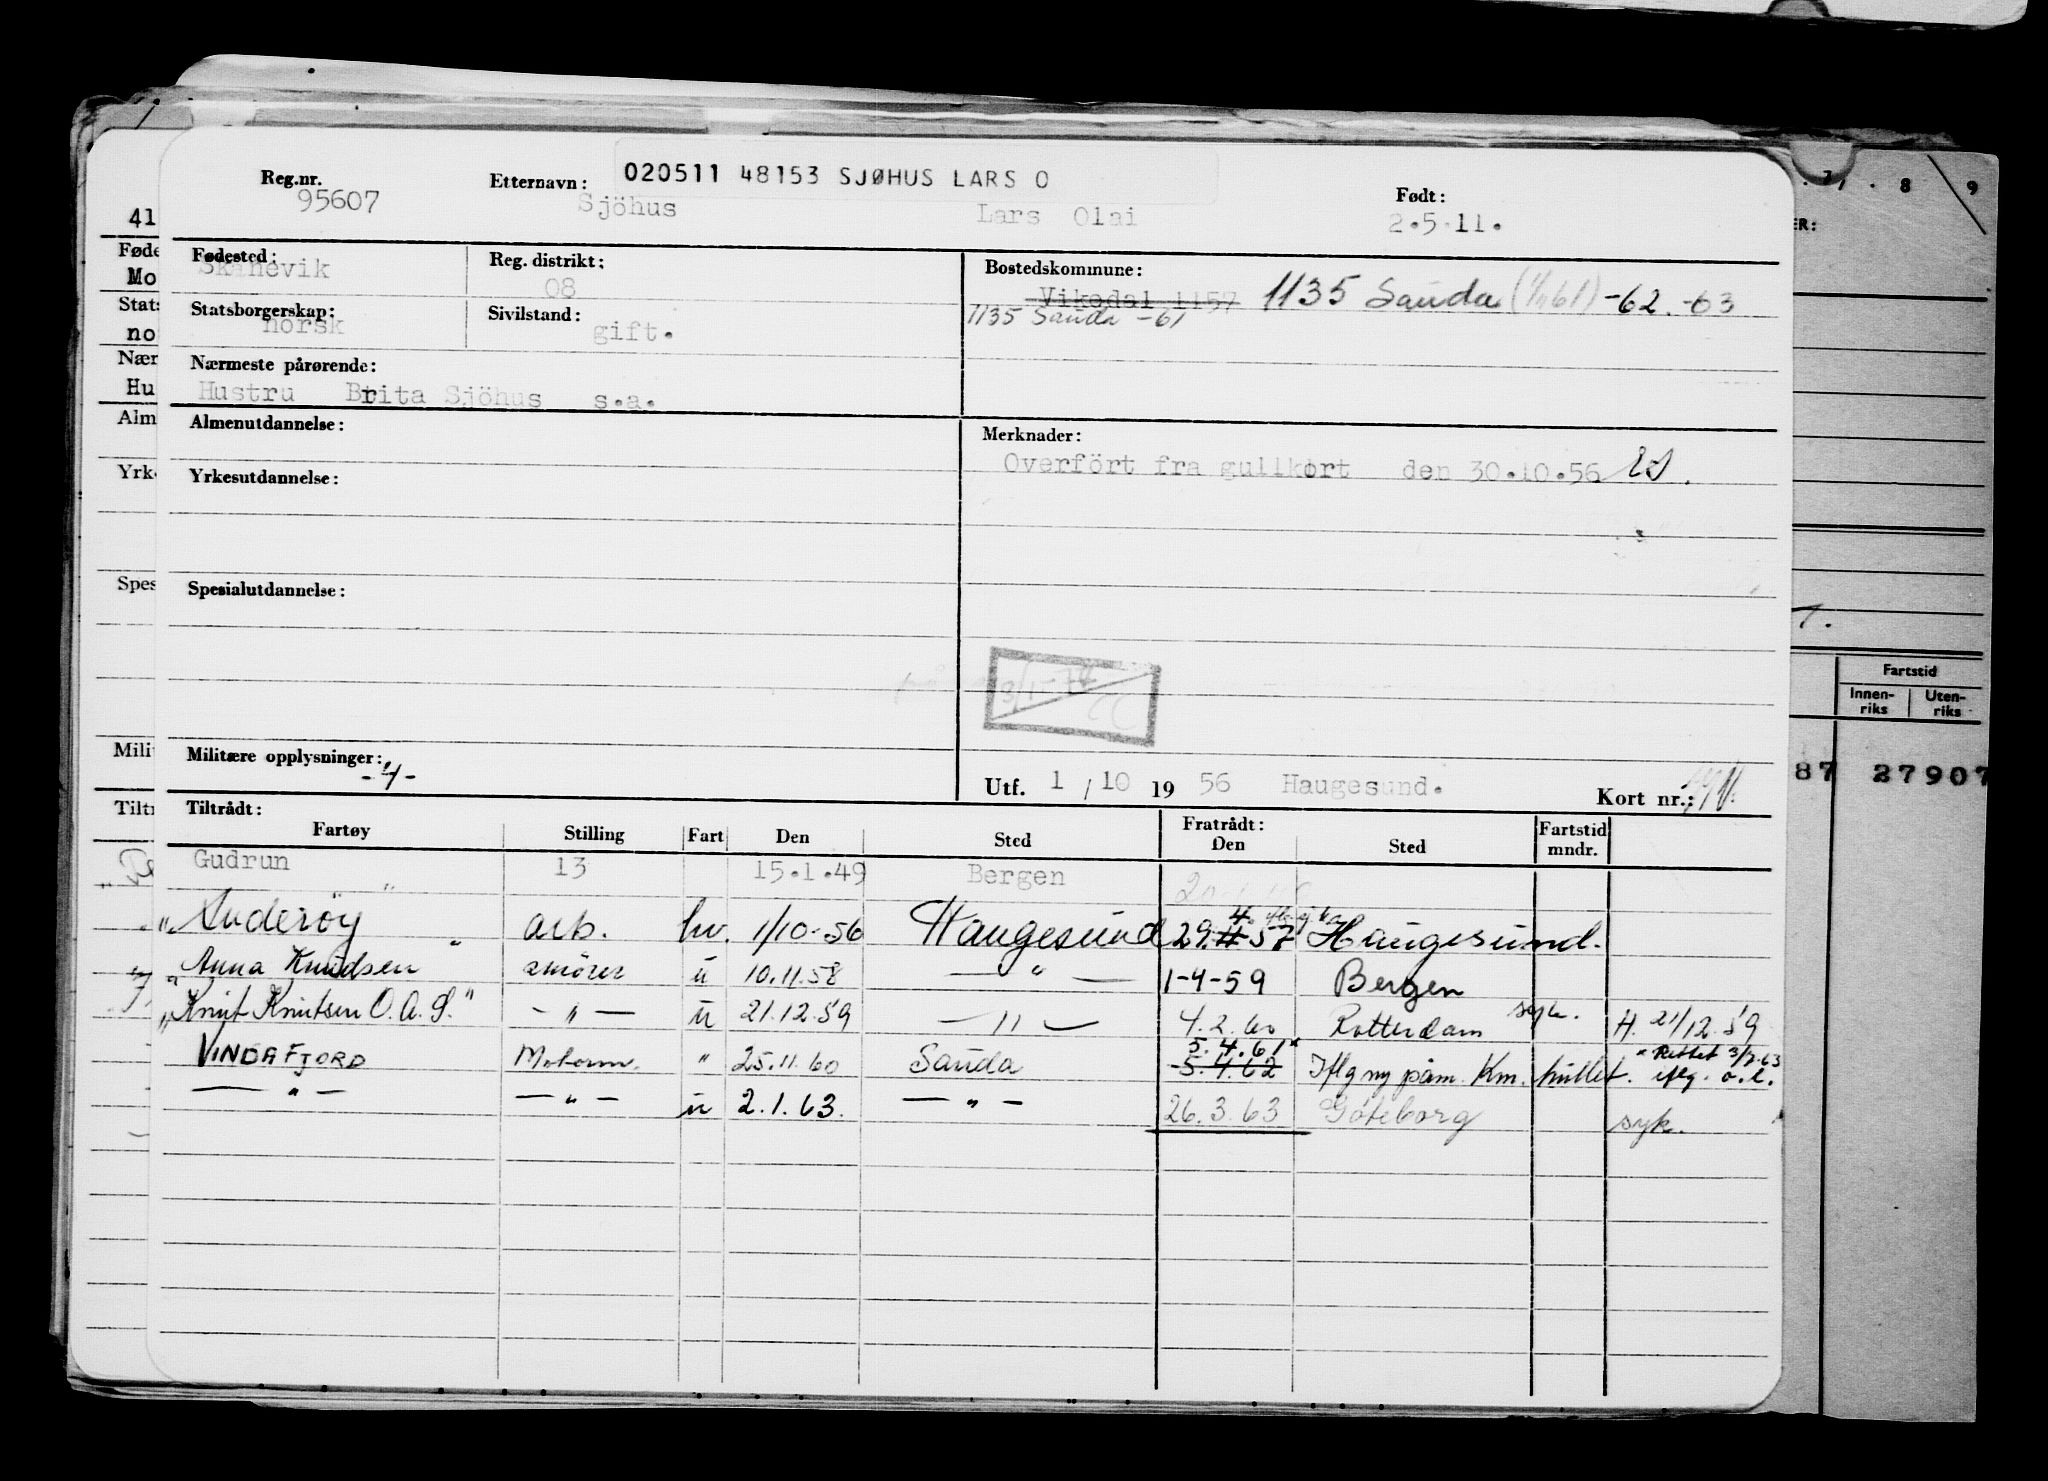 Reg.nr. 95607
Etternavn: 020511 48153 SJØHUS LARS O
Sjöhus Lars Olai
Født: 2.5.11.
Fødested: Skånevik
Reg. distrikt: 08
Bostedskommune: Vikedal 1157 1135 Sauda (1/1 61) -62. -63
1135 Sauda -61
Statsborgerskap: norsk
Sivilstand: gift.
Nærmeste pårørende:
Hustru Brita Sjöhus s.a.
Almenutdannelse:
Merknader:
Overfört fra gullkort den 30.10.56
Yrkesutdannelse:
Spesialutdannelse:
Militære opplysninger: -4-
Utf. 1 / 10 19 56 Haugesund.
Kort nr.:
Tiltrådt:
Fratrådt:
Fartøy Stilling Fart Den Sted Den Sted Fartstid mndr.
Gudrun 13 15.1.49 Bergen
"Suderøy" arb. hv. 1/10-56 Haugesund 29.4.57 Haugesund.
"Anna Knudsen" smörer u 10.11.58 — " — 1-4-59 Bergen
"Knut Knutsen O.A.S." - " - u 21.12.59 — " — 4.2.60 Rotterdam syk. H. 21/12.59
VINDAFJORD Motorm. " 25.11.60 Sauda 5.4.62 5.4.61* Iflg ny påm. Km. hullet. * Rettet 3/7.63 iflg. o.l.
— " — — " — u 2.1.63. — " — 26.3.63 Göteborg syk.
41
Føde
Mo
Stats
no
Nær
Hu
Alm
Yrke
Spes
Milit
Tiltr
. 7 . 8 9
ER:
Fartstid
Innen-riks Uten-riks
87 27907